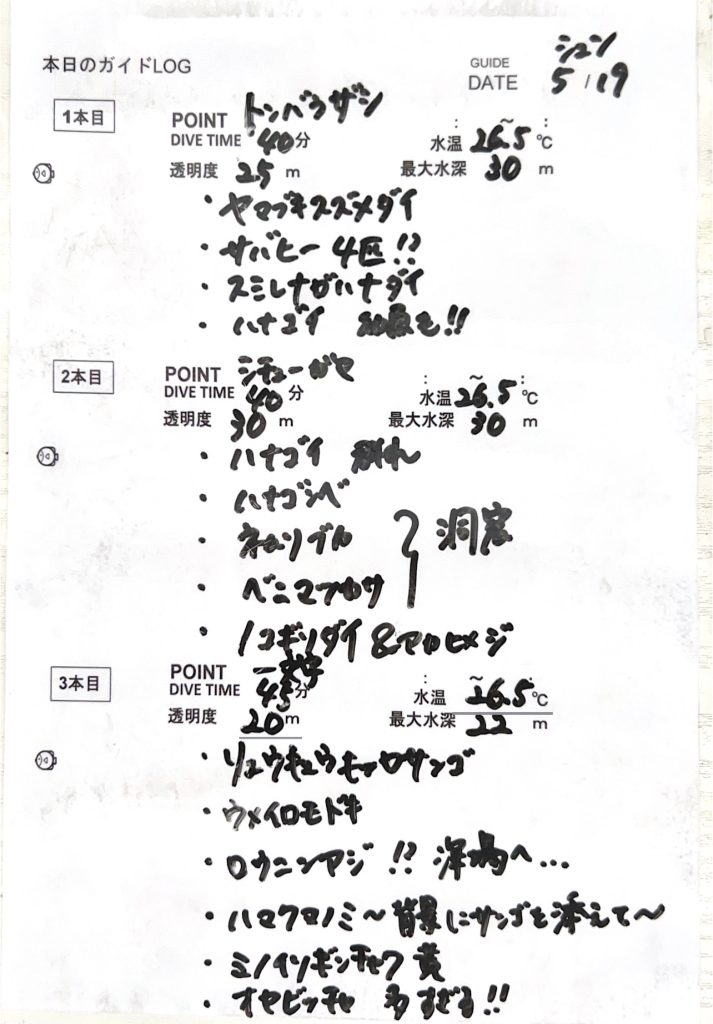 本日のガイドLOG
GUIDE シュン
DATE 5/19
1本目
POINT トンバラザシ
DIVE TIME 40分
水温 ~ 26.5℃
透明度 25 m
最大水深 30 m
・ヤマブキスズメダイ
・サバヒー 4匹!?
・スミレナガハナダイ
・ハナゴイ !!
2本目
POINT シチューガマ
DIVE TIME 40分
水温 ~ 26.5℃
透明度 30 m
最大水深 30 m
・ハナゴイ 群れ
・ハナゴンベ
・ネムリブカ
洞窟
・ベニマツカサ
・ノコギリダイ &アカヒメジ
3本目
POINT 一文字
DIVE TIME 45分
水温 ~ 26.5℃
透明度 20 m
最大水深 22 m
・リュウキュウキッカサンゴ
・ウメイロモドキ
・ロウニンアジ !? 深場へ…
・ハマクマノミ～背景にサンゴを添えて～
・ミノイソギンチャク 黄
・オヤビッチャ 多すぎる!!